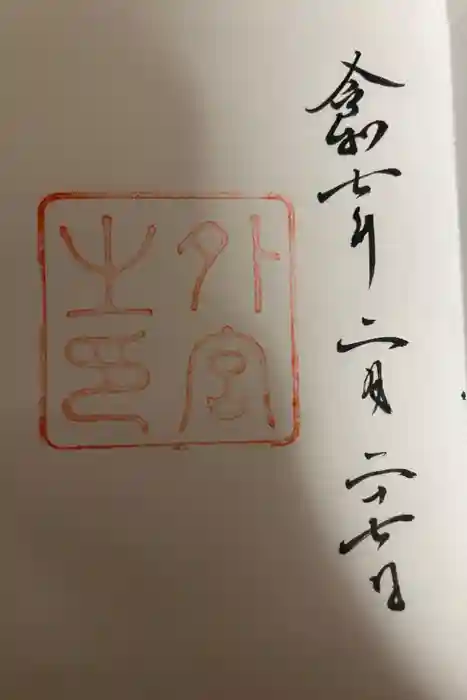 令和七年 二月 二十七日
外宮
之印